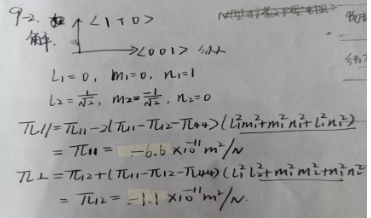 9-2.
解. <110>
→<001>
l₁=0, m₁=0, n₁=1
l₂=1/√2, m₂=-1/√2, n₂=0
π∥=π₁₁-2(π₁₁-π₁₂-π₄₄)(l₁²m₁²+m₁²n₁²+l₁²n₁²)
=π₁₁=-6.6×10⁻¹¹m²/N
π⊥=π₁₂+(π₁₁-π₁₂-π₄₄)(l₁²l₂²+m₁²m₂²+n₁²n₂²
=π₁₂=-1.1×10⁻¹¹m²/N.